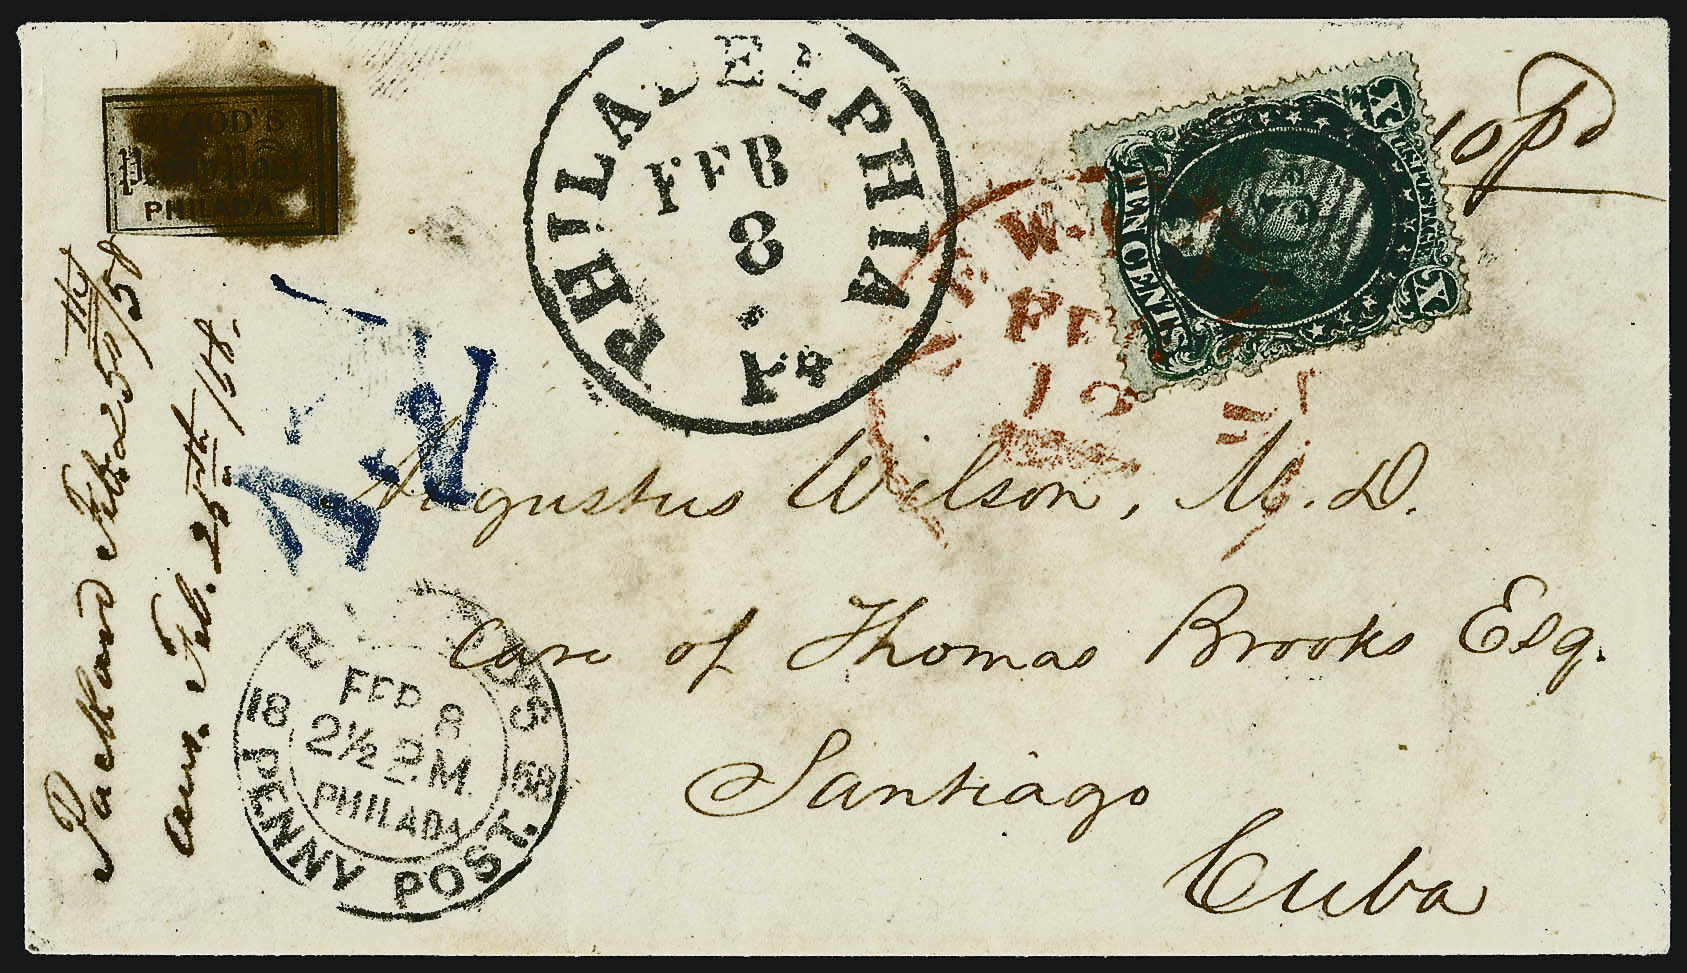 BLOOD'S
Penny Post
PHILADA.
PHILADELPHIA
FEB
8
10 pd
U.S. POSTAGE
TEN CENTS
X
X
FEB
12
Augustus Wilson, M.D.
Care of Thomas Brooks Esq.
Santiago
Cuba
18 58
FEB 8
2½ P.M.
PHILADA
PENNY POST.
Feb 25th/58
ans. Feb. 25th/58.